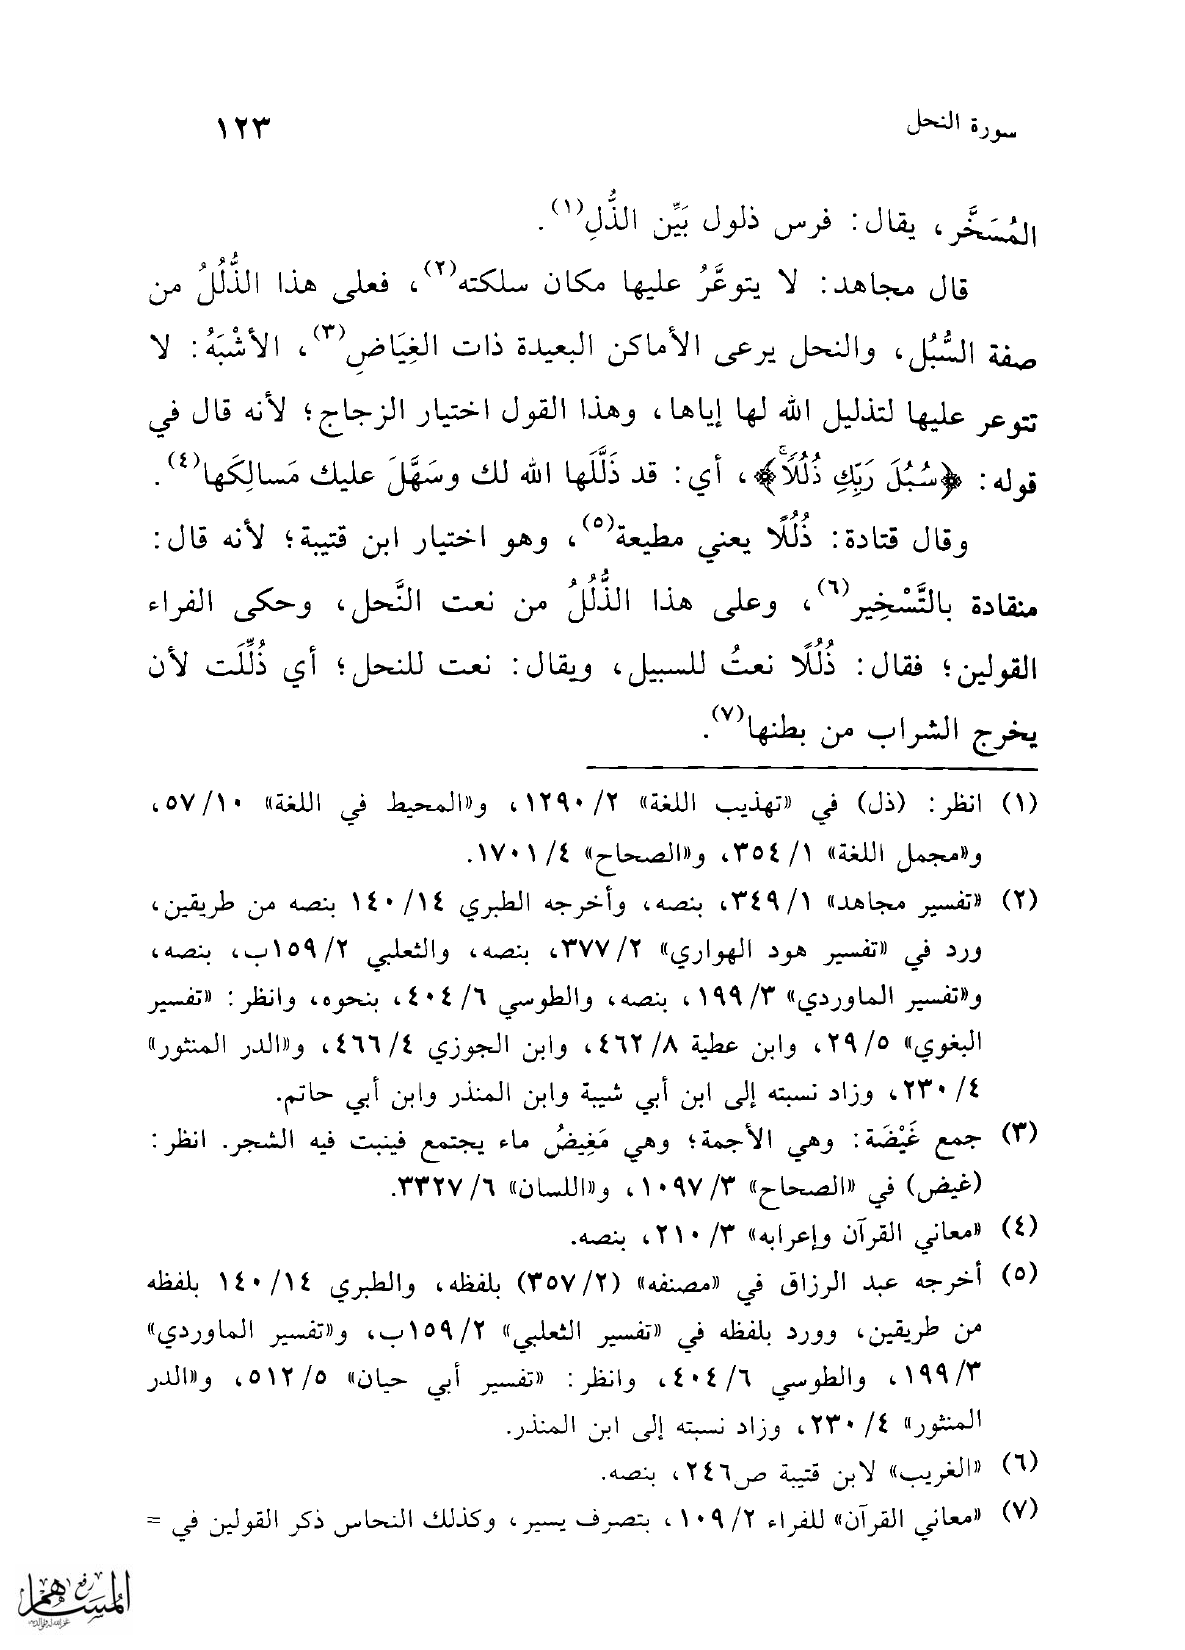 سورة النحل ١٢٣
المُسَخَّر، يقال: فرس ذلول بَيِّن الذُّلِ(١).
قال مجاهد: لا يتوعَّرُ عليها مكان سلكته(٢)، فعلى هذا الذُّلُلُ من
صفة السُّبُل، والنحل يرعى الأماكن البعيدة ذات الغِيَاضِ(٣)، الأشْبَهُ: لا
تتوعر عليها لتذليل الله لها إياها، وهذا القول اختيار الزجاج؛ لأنه قال في
قوله: ﴿سُبُلَ رَبِّكِ ذُلُلًاۚ﴾، أي: قد ذَلَّلَها الله لك وسَهَّلَ عليك مَسالِكَها(٤).
وقال قتادة: ذُلُلًا يعني مطيعة(٥)، وهو اختيار ابن قتيبة؛ لأنه قال:
منقادة بالتَّسْخِير(٦)، وعلى هذا الذُّلُلُ من نعت النَّحل، وحكى الفراء
القولين؛ فقال: ذُلُلًا نعتُ للسبيل، ويقال: نعت للنحل؛ أي ذُلِّلَت لأن
يخرج الشراب من بطنها(٧).
(١) انظر: (ذل) في «تهذيب اللغة» ٢/ ١٢٩٠، و«المحيط في اللغة» ١٠/ ٥٧،
و«مجمل اللغة» ١/ ٣٥٤، و«الصحاح» ٤/ ١٧٠١.
(٢) «تفسير مجاهد» ١/ ٣٤٩، بنصه، وأخرجه الطبري ١٤/ ١٤٠ بنصه من طريقين،
ورد في «تفسير هود الهواري» ٢/ ٣٧٧، بنصه، والثعلبي ٢/ ١٥٩ب، بنصه،
و«تفسير الماوردي» ٣/ ١٩٩، بنصه، والطوسي ٦/ ٤٠٤، بنحوه، وانظر: «تفسير
البغوي» ٥/ ٢٩، وابن عطية ٨/ ٤٦٢، وابن الجوزي ٤/ ٤٦٦، و«الدر المنثور»
٤/ ٢٣٠، وزاد نسبته إلى ابن أبي شيبة وابن المنذر وابن أبي حاتم.
(٣) جمع غَيْضَة: وهي الأجمة؛ وهي مَغِيضُ ماء يجتمع فينبت فيه الشجر. انظر:
(غيض) في «الصحاح» ٣/ ١٠٩٧، و«اللسان» ٦/ ٣٣٢٧.
(٤) «معاني القرآن وإعرابه» ٣/ ٢١٠، بنصه.
(٥) أخرجه عبد الرزاق في «مصنفه» (٢/ ٣٥٧) بلفظه، والطبري ١٤/ ١٤٠ بلفظه
من طريقين، وورد بلفظه في «تفسير الثعلبي» ٢/ ١٥٩ب، و«تفسير الماوردي»
٣/ ١٩٩، والطوسي ٦/ ٤٠٤، وانظر: «تفسير أبي حيان» ٥/ ٥١٢، و«الدر
المنثور» ٤/ ٢٣٠، وزاد نسبته إلى ابن المنذر.
(٦) «الغريب» لابن قتيبة ص٢٤٦، بنصه.
(٧) «معاني القرآن» للفراء ٢/ ١٠٩، بتصرف يسير، وكذلك النحاس ذكر القولين في =
رفع
المساهم